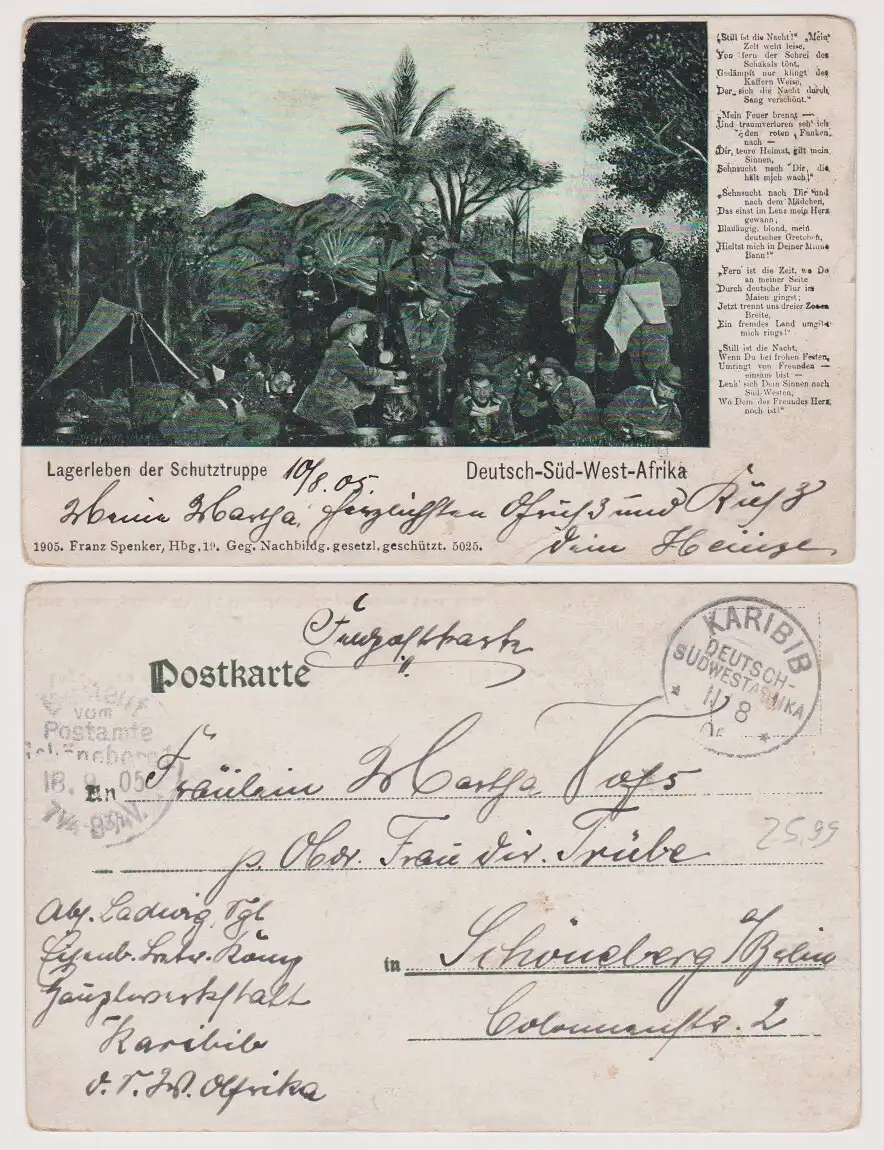 „Still ist die Nacht!" „Mein
Zelt weht leise,
Von fern der Schrei des
Schakals tönt,
Gedämpft nur klingt des
Kaffern Weise,
Der sich die Nacht durch
Sang verschönt."
„Mein Feuer brennt —
Und traumverloren seh' ich
den roten Funken
nach —
Dir, teure Heimat, gilt mein
Sinnen,
Sehnsucht nach Dir, die
hält mich wach!"
„Sehnsucht nach Dir und
nach dem Mädchen,
Das einst im Lenz mein Herz
gewann;
Blauäugig, blond, mein
deutsches Gretchen,
Hieltst mich in Deiner Minne
Bann!"
„Fern ist die Zeit, wo Du
an meiner Seite
Durch deutsche Flur im
Maien gingst;
Jetzt trennt uns dreier Zonen
Breite,
Ein fremdes Land umgibt
mich rings!"
„Still ist die Nacht,
Wenn Du bei frohen Festen,
Umringt von Freunden —
einsam bist —
Lenk' sich Dein Sinnen nach
Süd-Westen,
Wo Dein des Freundes Herz
noch ist!"
Lagerleben der Schutztruppe 10/8.05 Deutsch-Süd-West-Afrika
Meine Martha, herzlichsten Gruß und Kuß
dein Heinze
1905. Franz Spenker, Hbg. 19. Geg. Nachbildg. gesetzl. geschützt. 5025.
Feldpostkarte
Postkarte
KARIBIB
DEUTSCH-
SÜDWESTAFRIKA
11 8
vom
Postamte
18. 9. 05
7¼-8¾ V.
An Fräulein Martha Voss
p. Adr. Frau Dir. Trübe
25,99
in Schöneberg b/Berlin
Colonnenstr. 2
Abs. Ladwig,
Eisenb.
Hauptwerkstatt
Karibib
D. S. W. Afrika